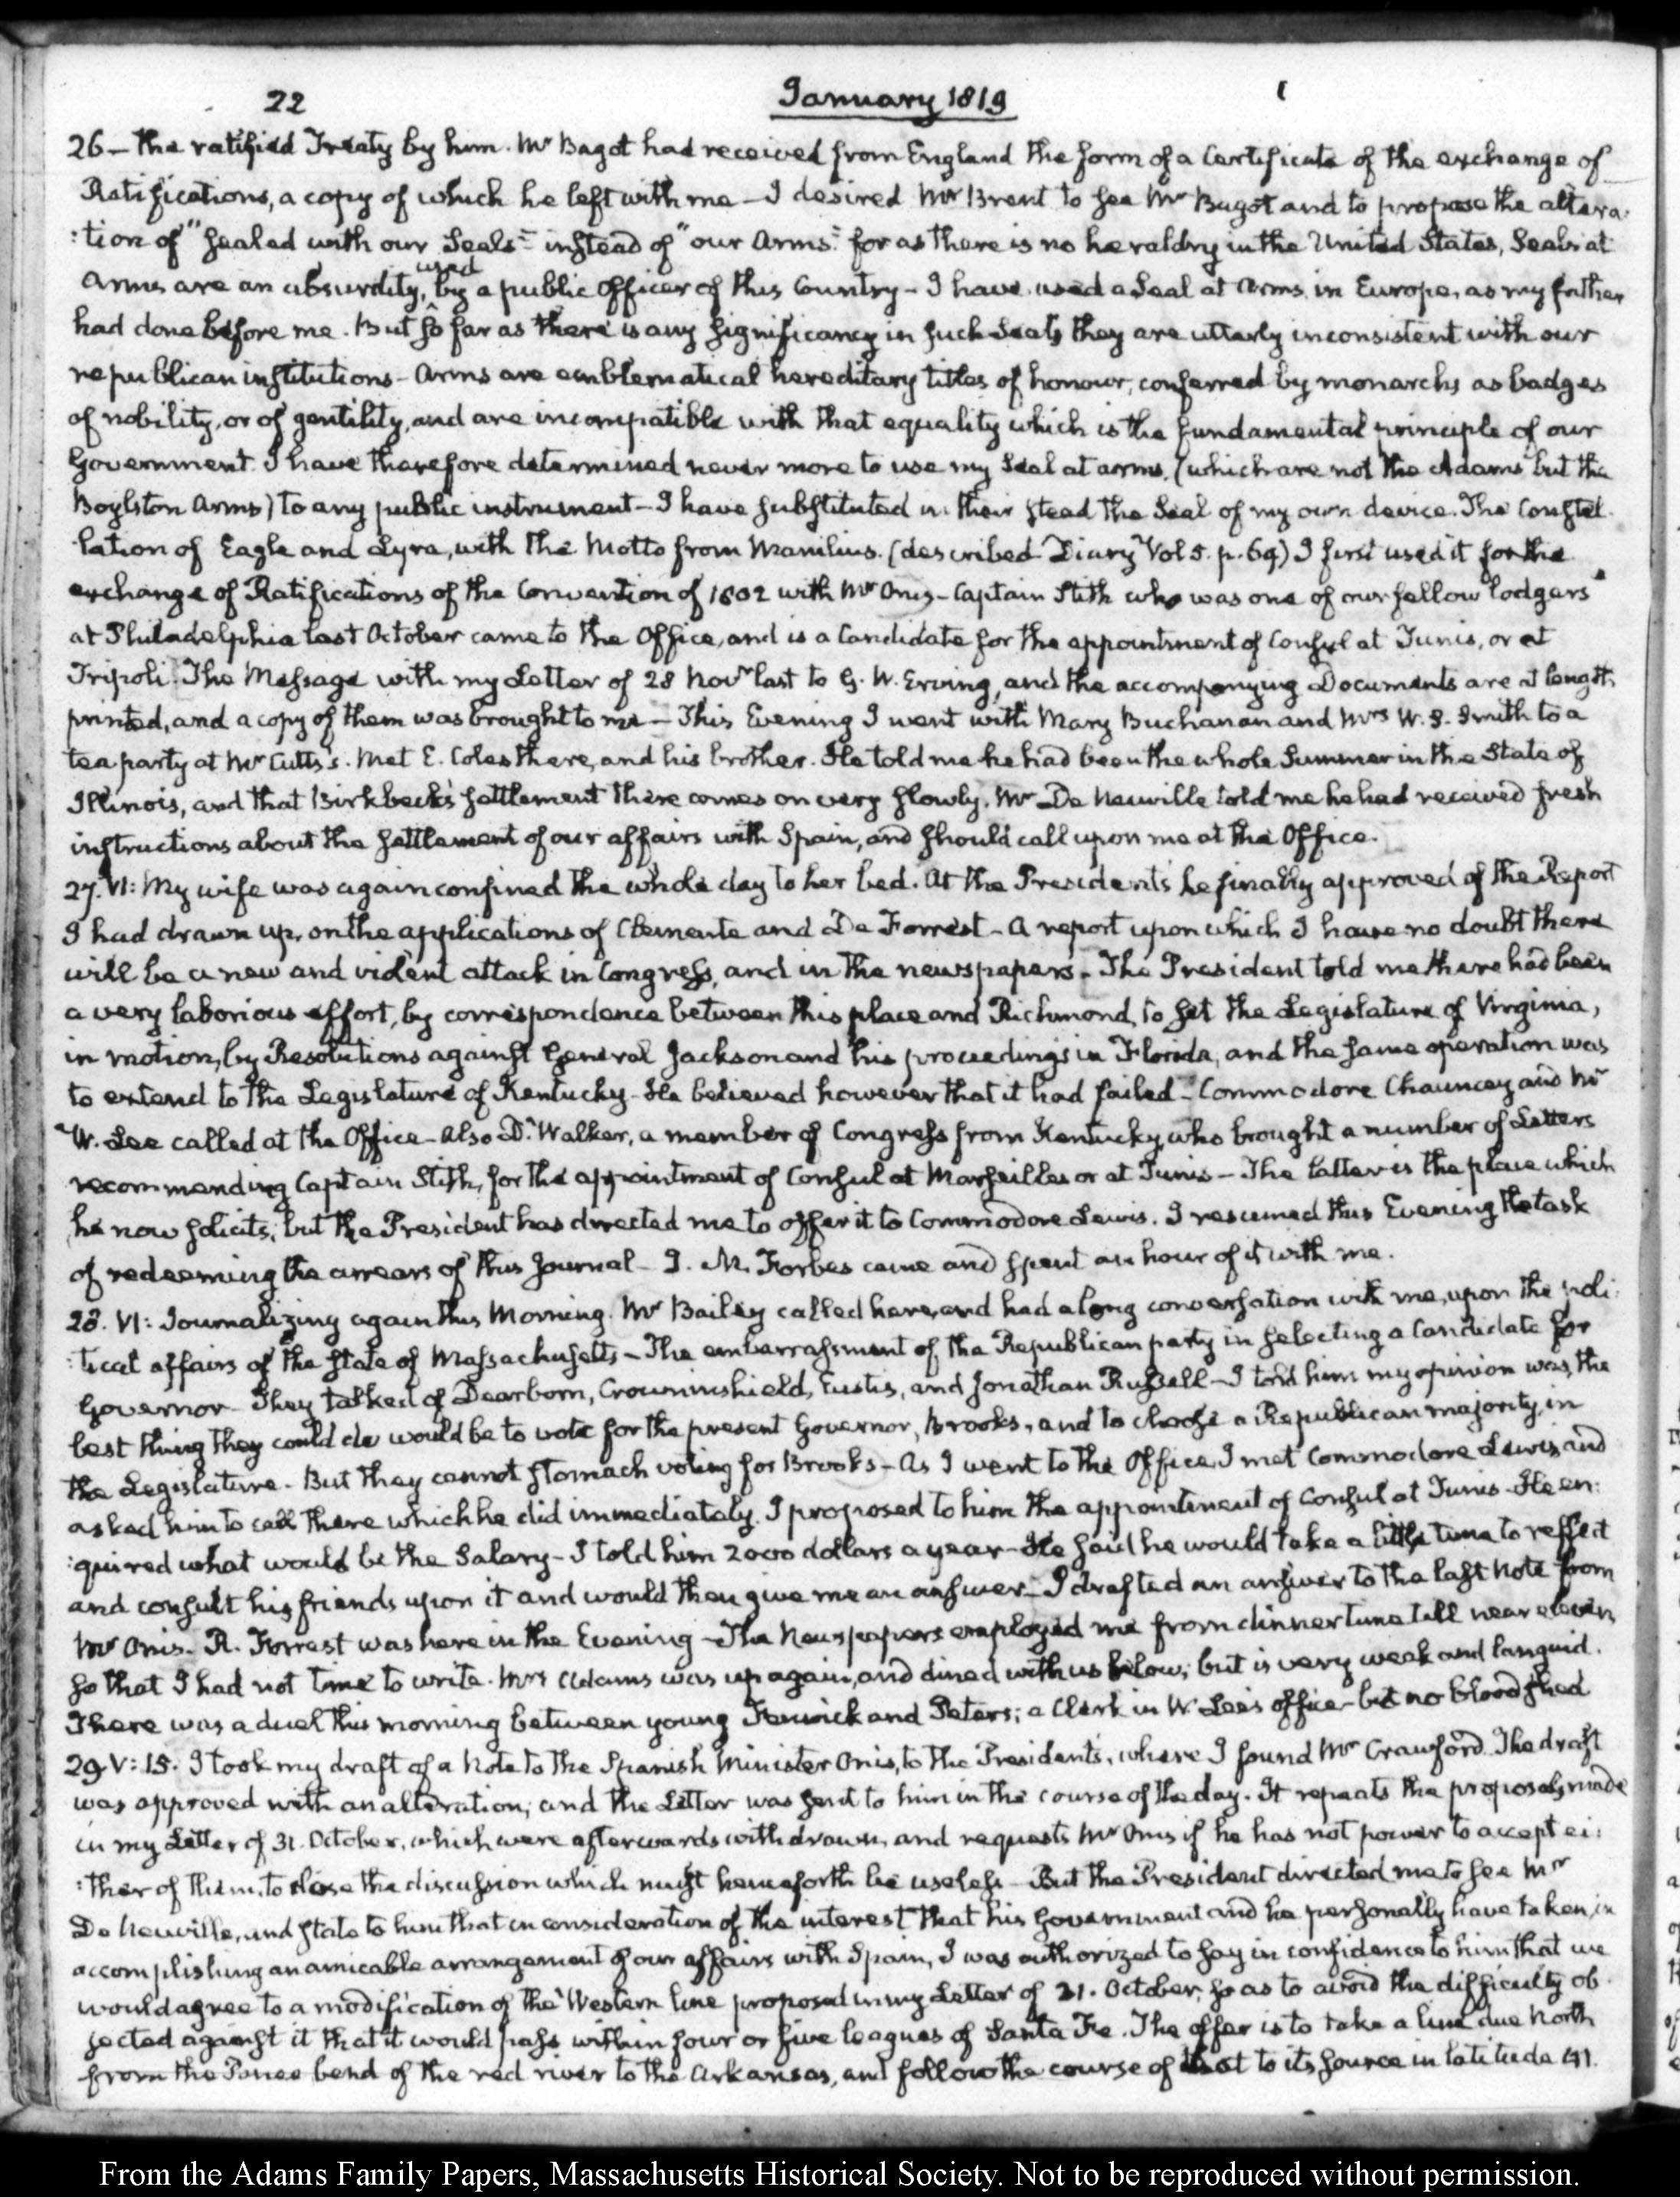 22
January 1819
26— the ratified Treaty by him. Mr Bagot had received from England the form of a Certificate of the exchange of
Ratifications, a copy of which he left with me— I desired Mr Brent to see Mr Bagot and to propose the altera:
:tion of "sealed with our Seals" instead of "our Arms": for as there is no heraldry in the United States, Seals at
Arms are an absurdity, used by a public Officer of this Country— I have used a Seal at Arms in Europe, as my father
had done before me. But so far as there is any significancy in such Seals they are utterly inconsistent with our
republican institutions— Arms are emblematical hereditary titles of honour, conferred by monarchs as badges
of nobility, or of gentility, and are incompatible with that equality which is the fundamental principle of our
Government. I have therefore determined never more to use my Seal at arms, (which are not the Adams but the
Boylston Arms) to any public instrument— I have substituted in their stead the Seal of my own device. The Constel
lation of Eagle and Lyra, with the Motto from Manilius. (described Diary Vol 5. p. 69) I first used it for the
exchange of Ratifications of the Convention of 1802 with Mr Onis— Captain Stith who was one of our fellow lodgers
at Philadelphia last October came to the Office, and is a Candidate for the appointment of Consul at Tunis, or at
Tripoli. The Message with my Letter of 28 Novr last to G. W. Erving, and the accompanying Documents are at length
printed, and a copy of them was brought to me— This Evening I went with Mary Buchanan and Mrs W. S. Smith to a
tea party at Mr Cutts's. Met E. Coles there, and his brother. He told me he had been the whole Summer in the State of
Illinois, and that Birkbeck's settlement there comes on very slowly. Mr De Neuville told me he had received fresh
instructions about the settlement of our affairs with Spain, and should call upon me at the Office.
27. VI: My wife was again confined the whole day to her bed. At the President's he finally approved of the Report
I had drawn up, on the applications of Clemente and De Forrest— A report upon which I have no doubt there
will be a new and violent attack in Congress, and in the newspapers— The President told me there had been
a very laborious effort, by correspondence between this place and Richmond, to set the Legislature of Virginia,
in motion, by Resolutions against General Jackson and his proceedings in Florida, and the same operation was
to extend to the Legislature of Kentucky— He believed however that it had failed— Commodore Chauncey and Mr
W. Lee called at the Office— Also Dr Walker, a member of Congress from Kentucky, who brought a number of Letters
recommending Captain Stith, for the appointment of Consul at Marseilles or at Tunis— The latter is the place which
he now solicits; but the President has directed me to offer it to Commodore Lewis. I resumed this Evening the task
of redeeming the arrears of this Journal— J. M. Forbes came and spent an hour of it with me.
28. VI: Journalizing again this Morning. Mr Bailey called here, and had a long conversation with me, upon the poli:
:tical affairs of the State of Massachusetts— The embarrassment of the Republican party in selecting a Candidate for
Governor— They talked of Dearborn, Crowninshield, Eustis, and Jonathan Russell— I told him my opinion was, the
best thing they could do would be to vote for the present Governor, Brooks, and to choose a Republican majority, in
the Legislature. But they cannot stomach voting for Brooks— As I went to the Office I met Commodore Lewis, and
asked him to call there which he did immediately. I proposed to him the appointment of Consul at Tunis— He en:
:quired what would be the Salary— I told him 2000 dollars a year— He said he would take a little time to reflect
and consult his friends upon it and would then give me an answer— I drafted an answer to the last Note from
Mr Onis— R. Forrest was here in the Evening— The Newspapers employed me from dinner time till near eleven,
so that I had not time to write. Mrs Adams was up again, and dined with us below; but is very weak and languid.
There was a duel this morning between young Fenwick and Peters; a Clerk in W. Lee's office— but no blood shed
29. V: 15. I took my draft of a Note to the Spanish Minister Onis, to the President's, where I found Mr Crawford. The draft
was approved with an alteration; and the Letter was sent to him in the course of the day. It repeats the proposals made
in my Letter of 31. October, which were afterwards withdrawn, and requests Mr Onis if he has not power to accept ei:
:ther of them, to close the discussion which must henceforth be useless— But the President directed me to see Mr
De Neuville, and state to him that in consideration of the interest that his Government and he personally have taken, in
accomplishing an amicable arrangement of our affairs with Spain, I was authorized to say in confidence to him that we
would agree to a modification of the Western line proposed in my Letter of 31. October, so as to avoid the difficulty ob
jected against it that it would pass within four or five leagues of Santa Fe. The offer is to take a line due North
from the Panee bend of the red river to the Arkansas, and follow the course of that to its source in latitude 41.
From the Adams Family Papers, Massachusetts Historical Society. Not to be reproduced without permission.